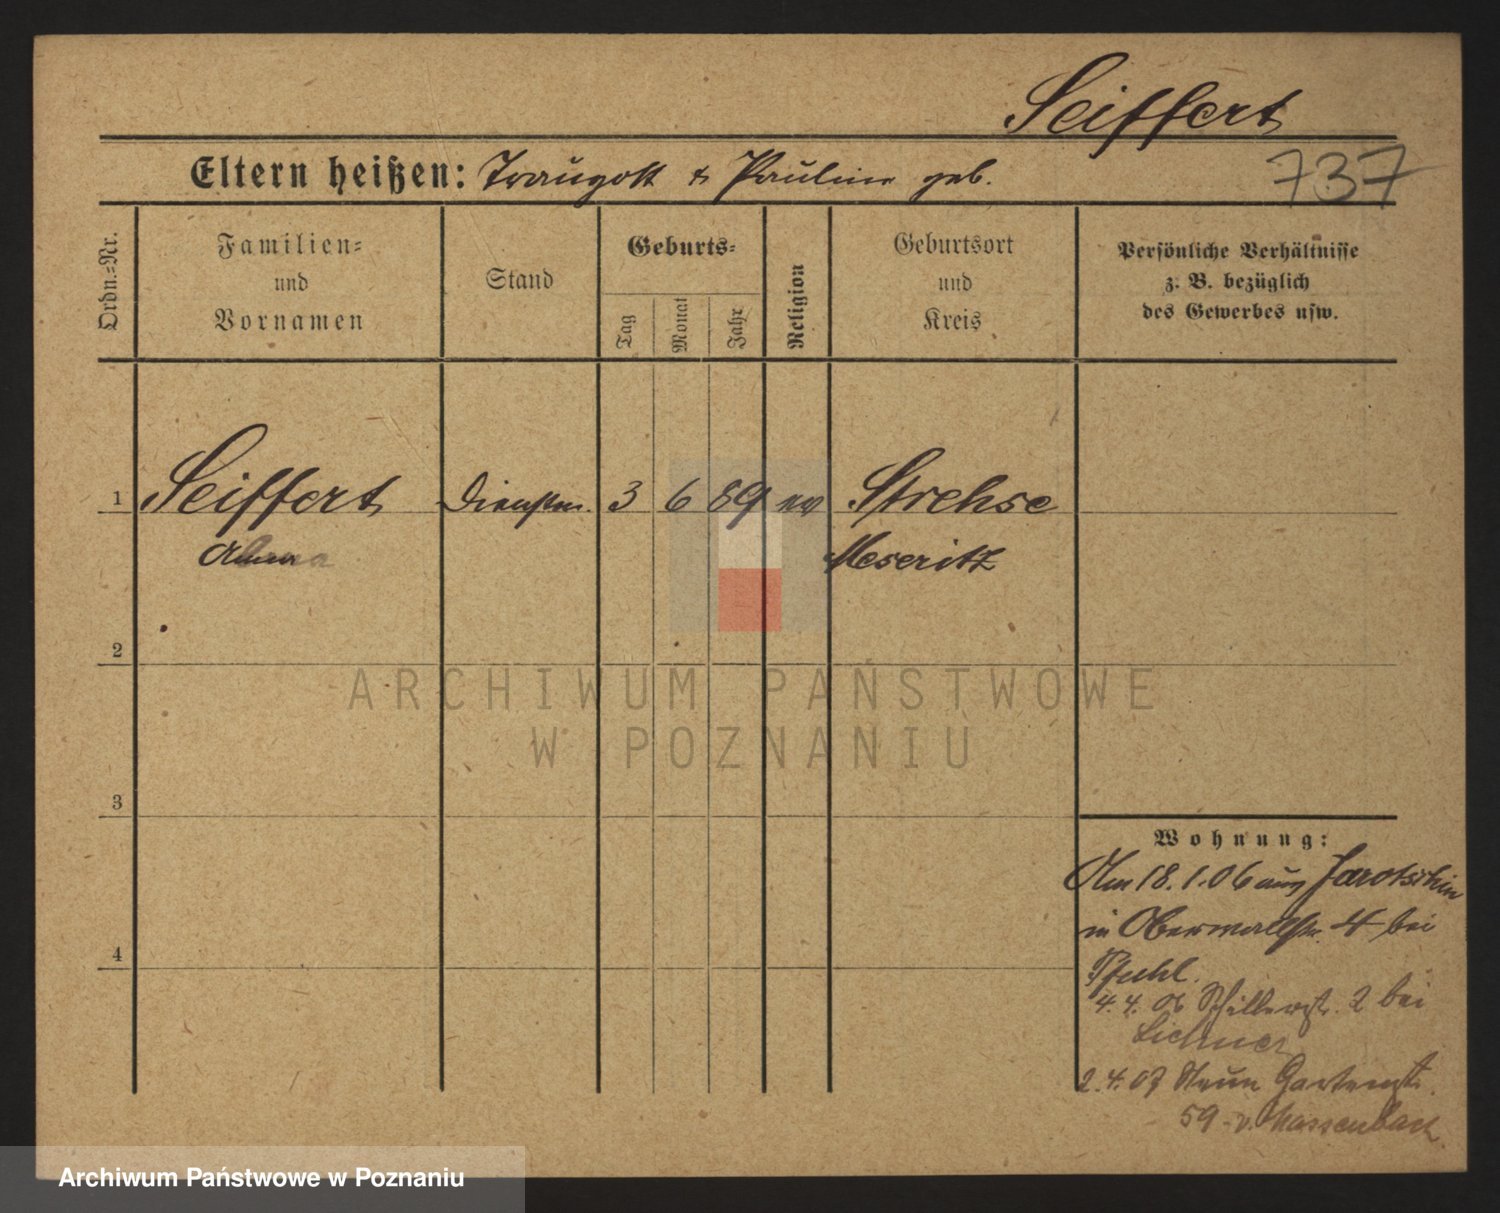 Seiffert
Eltern heißen: Traugott & Pauline geb.
737
Ordn.=Nr.
Familien=
und
Vornamen
Stand
Geburts=
Tag
Monat
Jahr
Religion
Geburtsort
und
Kreis
Persönliche Verhältnisse
z. B. bezüglich
des Gewerbes usw.
1 Seiffert Dienstm. 3 6 89 ev Strehse
Meseritz
2
3
4
Wohnung:
Am 18.1.06 aus Jarotschin
in Oberwallstr. 4 bei
Pfuhl.
4.4.06 Schillerstr. 2 bei
2.4.07 Gartenstr.
59 - v. Massenbach.
ARCHIWUM PAŃSTWOWE
W POZNANIU
Archiwum Państwowe w Poznaniu